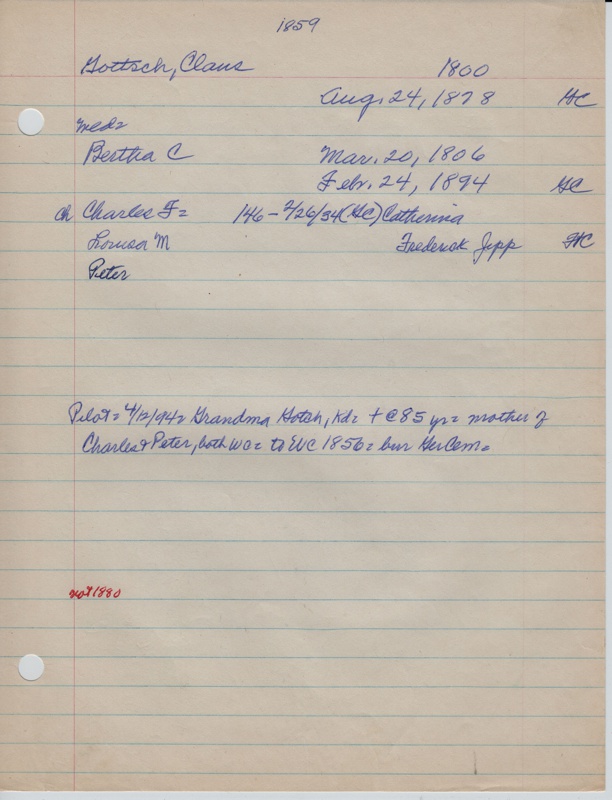 1859
Gottsch, Claus 1800
Aug. 24, 1878 HC
med=
Bertha C Mar. 20, 1806
Febr. 24, 1894 HC
ch Charles F= 146- 2/26/34(HC) Catherina
Louisa M Frederick Jepp HC
Peter
Pilot= 4/12/94= Grandma Gotch, Kd= + @ 85 yr= mother of
Charles & Peter, both WC= to EVC 1856= bur Ger Cem=
not 1880